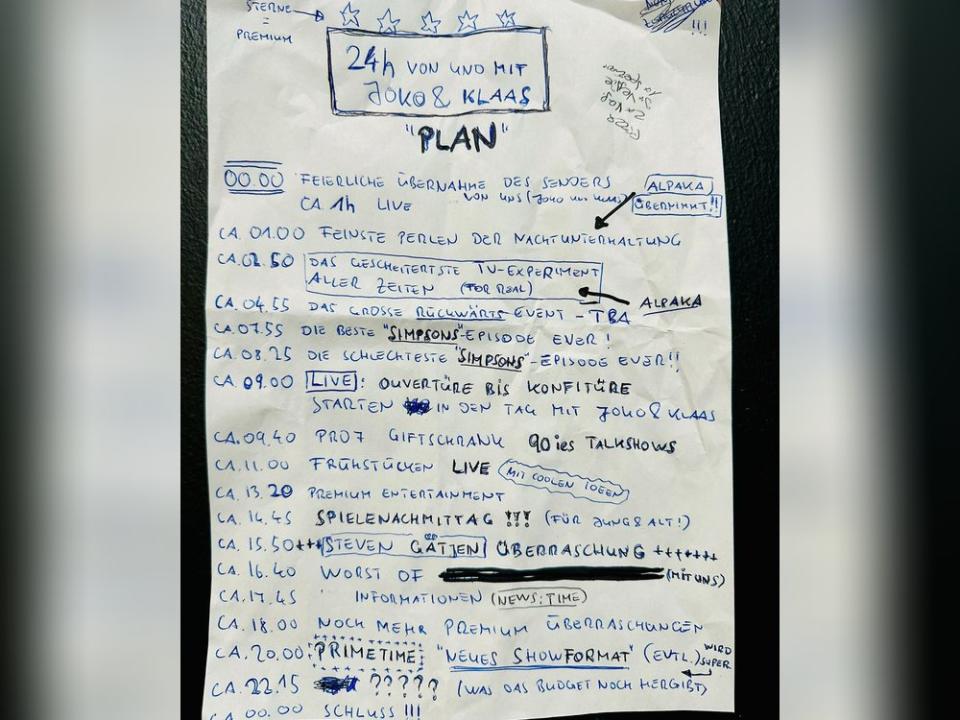 STERNE
=
PREMIUM
!!!
24h VON UND MIT
JOKO & KLAAS
"PLAN"
00.00 FEIERLICHE ÜBERNAHME DES SENDERS
VON UNS (JOKO UND KLAAS)
CA. 1h LIVE
ALPAKA
ÜBERNIMMT!!
CA. 01.00 FEINSTE PERLEN DER NACHTUNTERHALTUNG
CA. 02.50 DAS GESCHEITERTSTE TV-EXPERIMENT
ALLER ZEITEN (FOR REAL)
ALPAKA
CA. 04.55 DAS GROSSE RÜCKWÄRTS-EVENT - TBA
CA. 07.55 DIE BESTE "SIMPSONS"-EPISODE EVER!
CA. 08.25 DIE SCHLECHTESTE "SIMPSONS"-EPISODE EVER!!
CA. 09.00 LIVE: OUVERTÜRE BIS KONFITÜRE
STARTEN IN DEN TAG MIT JOKO & KLAAS
CA. 09.40 PRO7 GIFTSCHRANK 90ies TALKSHOWS
CA. 11.00 FRÜHSTÜCKEN LIVE MIT COOLEN IDEEN
CA. 13.20 PREMIUM ENTERTAINMENT
CA. 14.45 SPIELENACHMITTAG !!! (FÜR JUNG & ALT!)
CA. 15.50+++ STEVEN GÄTJEN ÜBERRASCHUNG +++++++
CA. 16.40 WORST OF (MIT UNS)
CA. 17.45 INFORMATIONEN (NEWS:TIME)
CA. 18.00 NOCH MEHR PREMIUM ÜBERRASCHUNGEN
CA. 20.00 PRIMETIME "NEUES SHOWFORMAT" (EVTL.) WIRD
SUPER
CA. 22.15 ????? (WAS DAS BUDGET NOCH HERGIBT)
CA. 00.00 SCHLUSS !!!